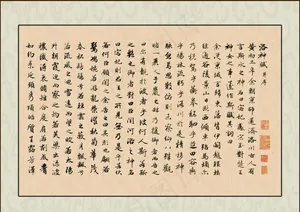 洛神賦
黃初三年余朝京師還濟洛川古人有
言斯水之神名曰宓妃感宋玉對楚王
神女之事遂作斯賦其詞曰
余從京域言歸東藩背伊闕越轘轅
經通谷陵景山日既西傾車殆馬煩爾
乃稅駕乎蘅皋秣駟乎芝田容與乎
楊林流眄乎洛川於是精移神
駭忽焉思散俯則未察仰以殊觀
睹一麗人于巖之畔乃援御者而告之
曰爾有覿於彼者乎彼何人斯若斯
之豔也御者對曰臣聞河洛之神名
曰宓妃則君王之所見無乃是乎其狀
若何臣願聞之余告之曰其形也翩若
驚鴻婉若游龍榮曜秋菊華茂
春松髣髴兮若輕雲之蔽月飄颻兮若
流風之迴雪遠而望之皎若太陽
升朝霞迫而察之灼若芙蕖出淥波
穠纖得衷脩短合度肩若削成腰
如約素延頸秀項皓質呈露芳澤